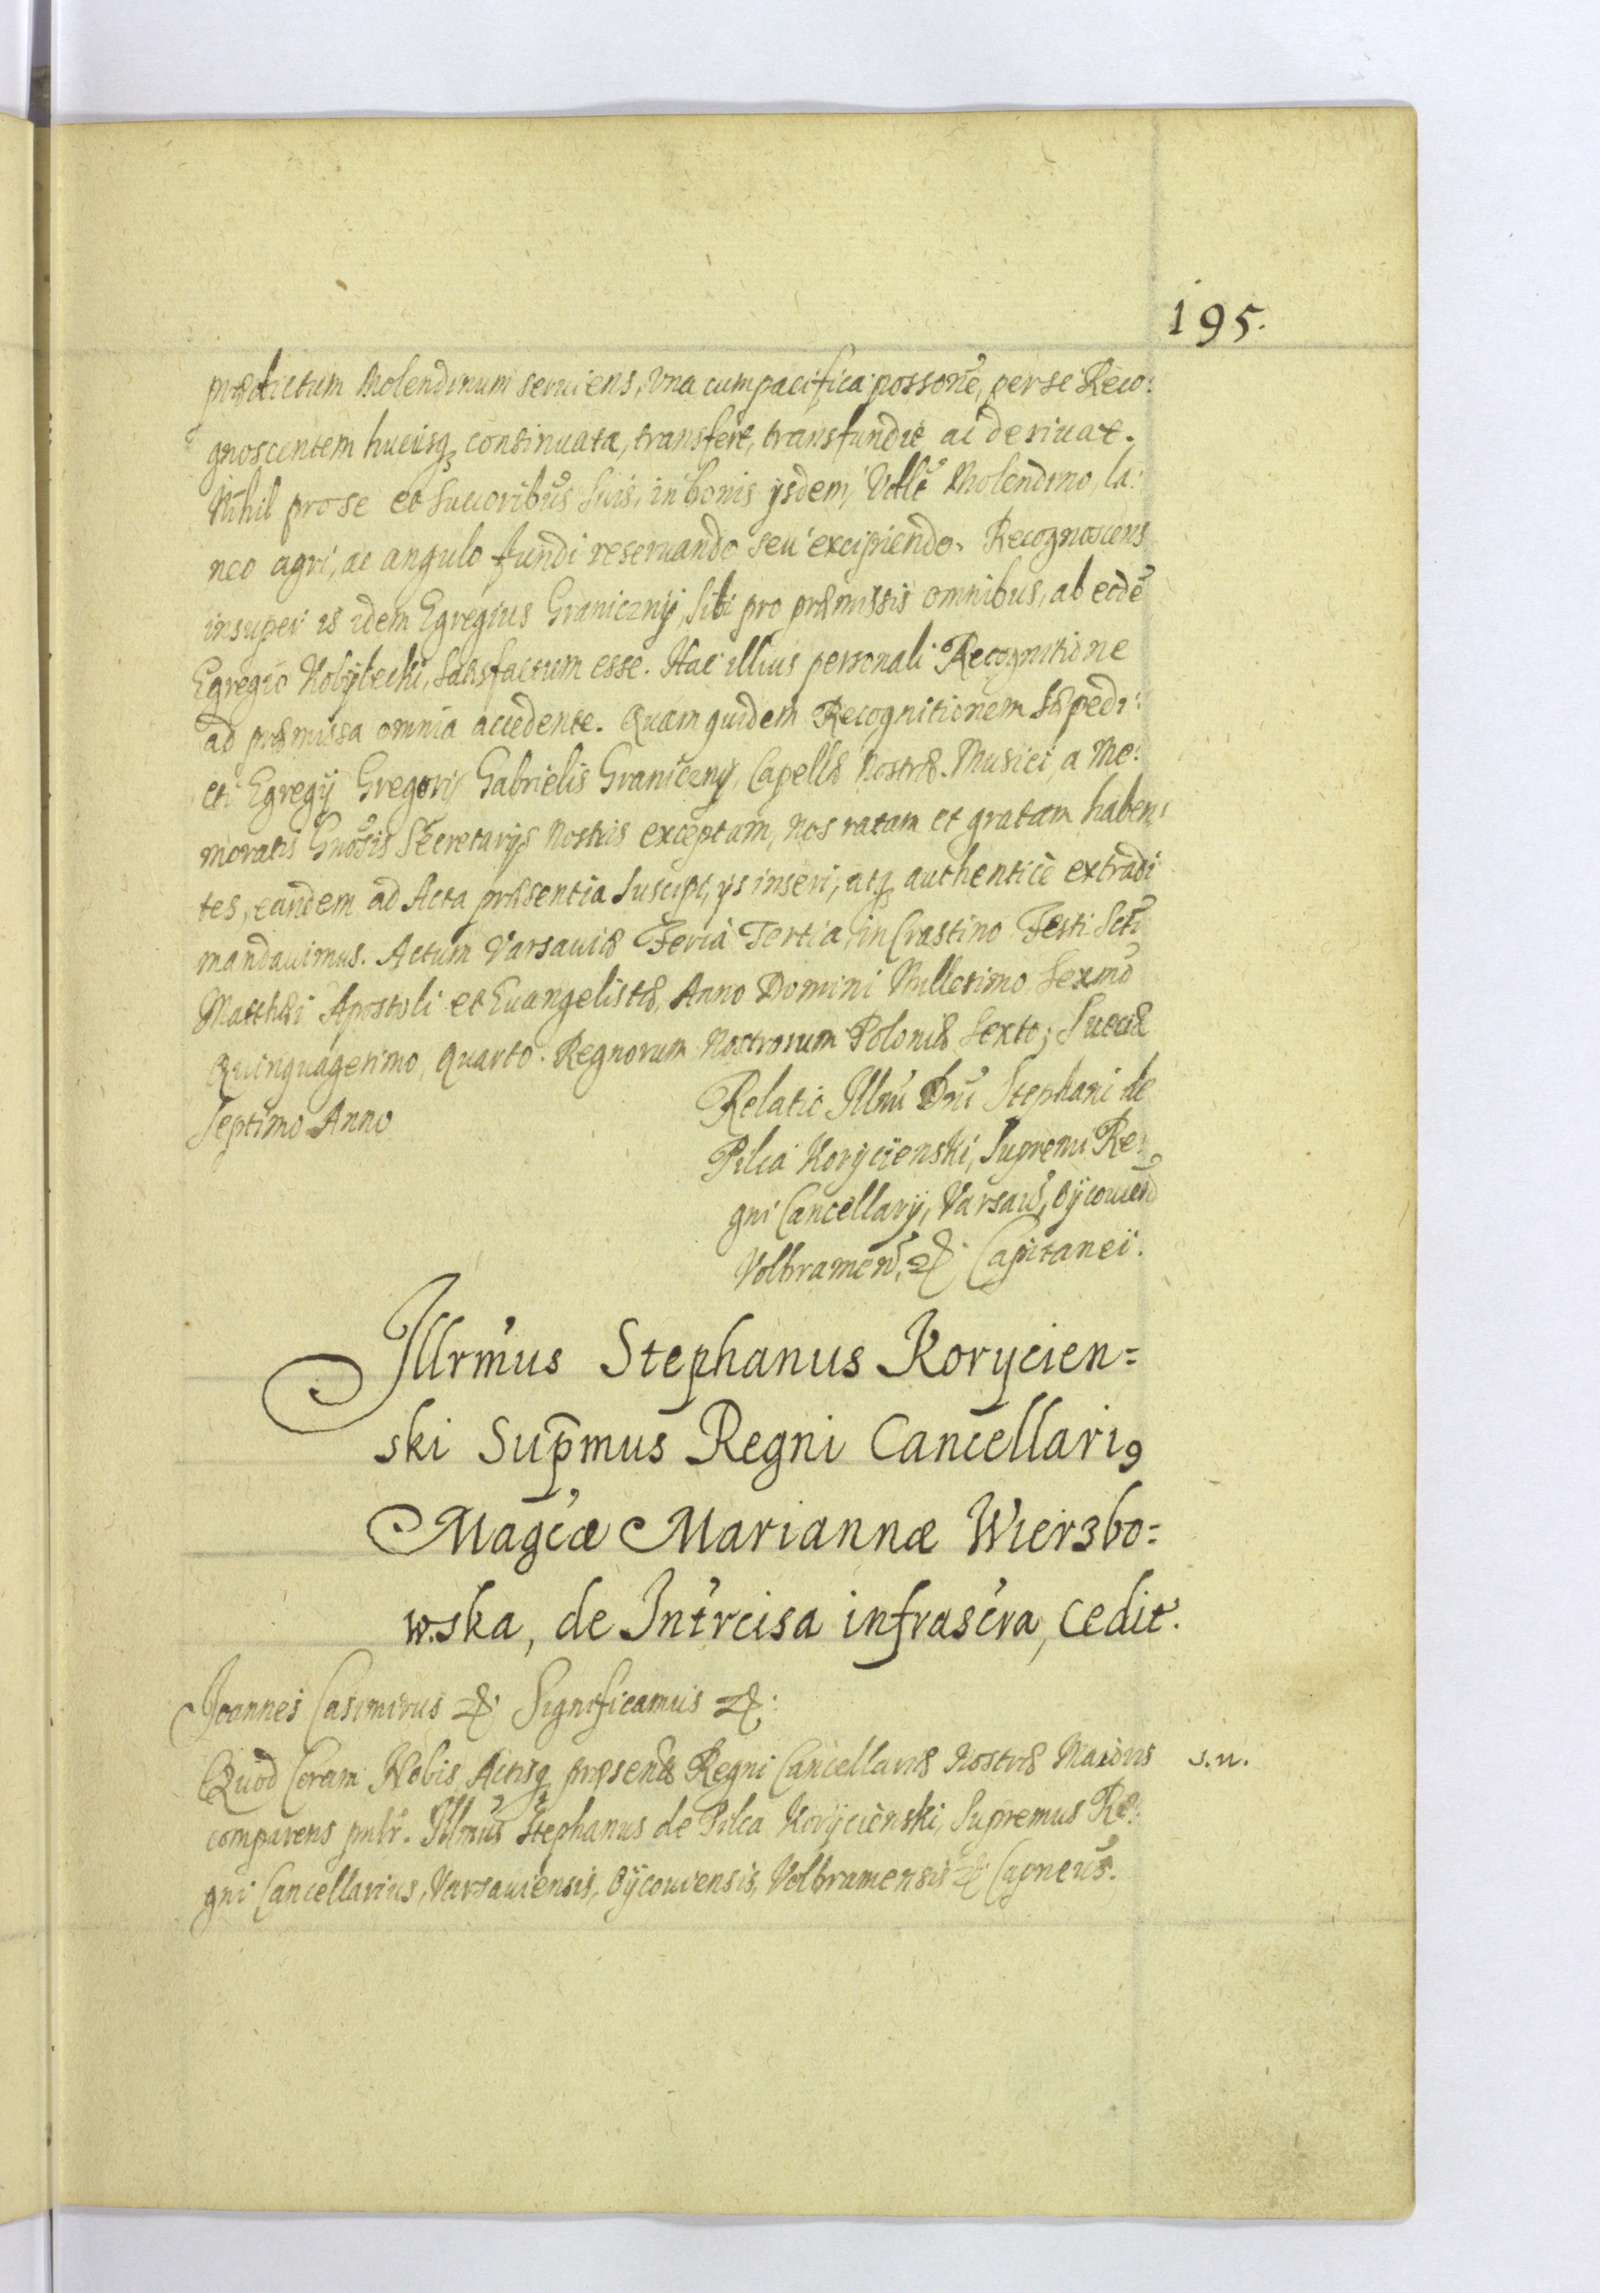 195.
prædictum Molendinum seruiens, Vna cum pacifica possone, per se Reco:
gnoscentem hucusq continuata, transfert, transfundit ac deriuat.
Nihil pro se et Succoribus Suis, in bonis ysdem, Vtlt Molendino, la:
neo agri, ac angulo fundi reseruando seu excipiendo. Recognoscens
insuper is idem Egregius Granicznij, Sibi pro præmissis omnibus, ab eodē
Egregio Kobyłecki, Satisfactum esse. Hac illius personali Recognitione
ad præmissa omnia accedente. Quam quidem Recognitionem Sæpedi:
cti Egregij Gregorij Gabrielis Granicznij, Capellæ Nostræ Musici, a Me:
moratis Gnosis Secretarijs Nostris exceptam, Nos ratam et gratam haben:
tes, eandem ad Acta præsentia Suscipi, ijs inseri, atq authentice extradi
mandauimus. Actum Varsauiæ Feria Tertia in Crastino Festi Scti
Matthæi Apostoli et Euangelistæ, Anno Domini Millesimo Sexmo
Quinquagesimo, Quarto. Regnorum Nostrorum Poloniæ Sexto; Sueciæ
Septimo Anno
Relatio Illmi Dni Stephani de
Pilca Korycienski, Supremi Re:
gni Cancellarij, Varsauien, Oijcouien
Volbramen, & Capitanei.
Illrmus Stephanus Korycien=
ski Supmus Regni Cancellari9
Magcæ Mariannæ Wierzbo=
wska, de Intrcisa infrascra, Cedit.
Joannes Casimirus & Significamus &.
Quod Coram Nobis Actisq præsentib Regni Cancellariæ Nostræ Maioris s.n.
comparens pnlr. Illmus Stephanus de Pilca Koryciènski, Supremus Re:
gni Cancellarius, Varsauiensis, Oijcouiensis, Volbramensis & Capneus.